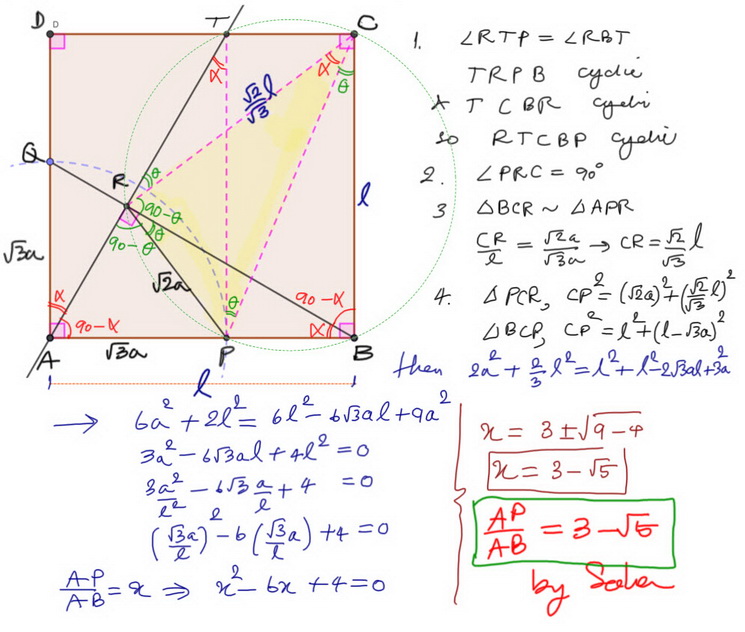 D D T C
α α θ
√2/√3 l
Q
R θ
90-θ
90-θ θ
l
√3a
√2a
α θ 90-α
90-α α
A √3a P B
l
1. ∠RTP = ∠RBT
TRPB cyclic
∧ TCBR cyclic
so RTCBP cyclic
2. ∠PRC = 90°
3 △BCR ~ △APR
CR/l = √2a/√3a → CR = √2/√3 l
4. △PCR, CP² = (√2a)² + (√2/√3 l)²
△BCP, CP² = l² + (l-√3a)²
then 2a² + 2/3 l² = l² + l² - 2√3al + 3a²
→ 6a² + 2l² = 6l² - 6√3al + 9a²
3a² - 6√3al + 4l² = 0
3a²/l² - 6√3 a/l + 4 = 0
(√3a/l)² - 6(√3a/l) + 4 = 0
AP/AB = x ⇒ x² - 6x + 4 = 0
x = 3 ± √9-4
x = 3 - √5
AP/AB = 3 - √5
by Saber